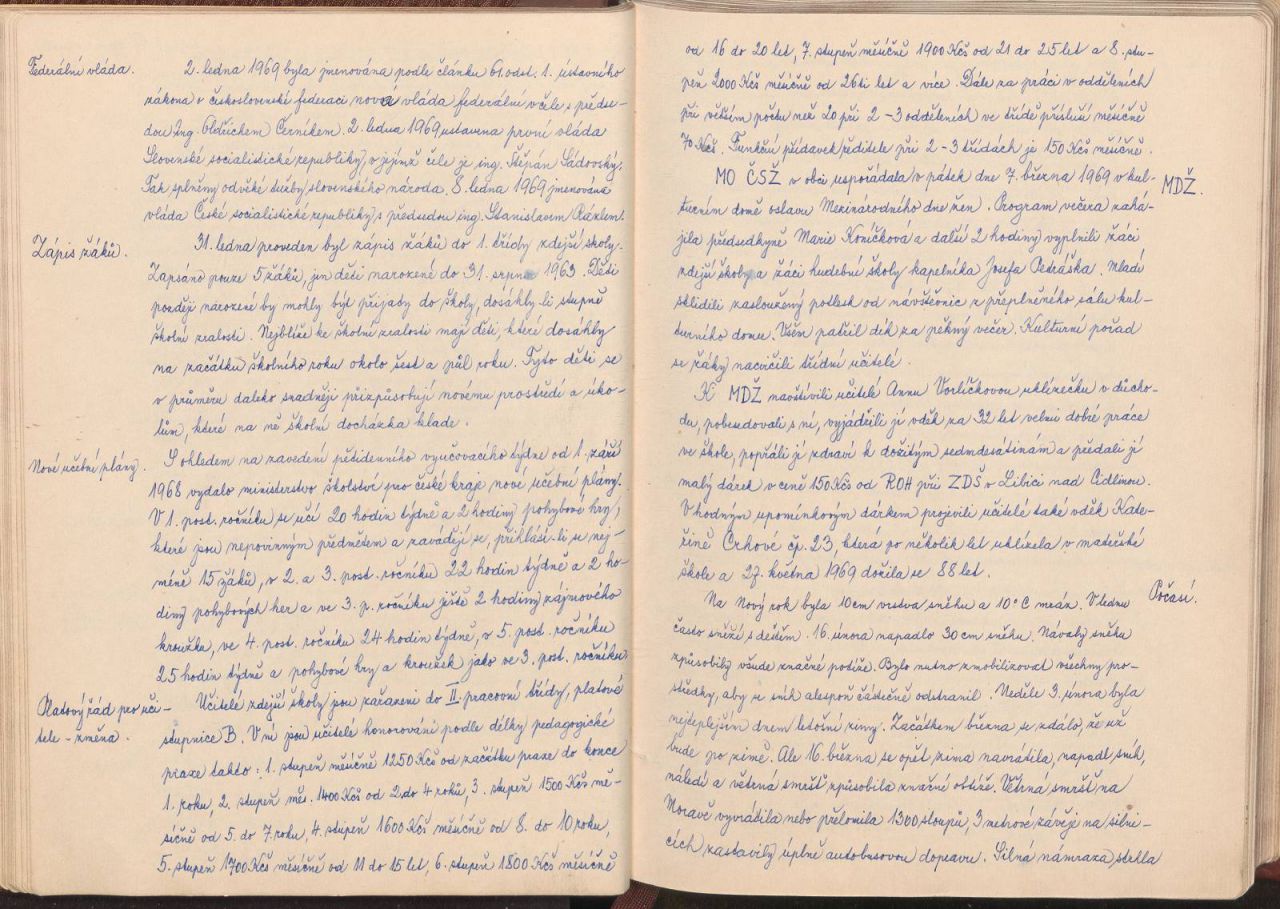 Federální vláda.
2. ledna 1969 byla jmenována podle článku 61. odst. 1. ústavního
zákona o československé federaci nová vláda federální v čele s předse-
dou Ing. Oldřichem Černíkem. 2. ledna 1969 ustavena první vláda
Slovenské socialistické republiky, v jejímž čele je ing. Štěpán Sádovský.
Tak splněny odvěké tužby slovenského národa. 8. ledna 1969 jmenována
vláda České socialistické republiky s předsedou ing. Stanislavem Rázlem.
Zápis žáků.
31. ledna proveden byl zápis žáků do 1. třídy zdejší školy.
Zapsáno pouze 5 žáků, jen děti narozené do 31. srpna 1963. Děti
později narozené by mohly být přijaty do školy, dosáhly-li stupně
školní zralosti. Nejblíže ke školní zralosti mají děti, které dosáhly
na začátku školního roku okolo šest a půl roku. Tyto děti se
v průměru daleko snadněji přizpůsobují novému prostředí a úko-
lům, které na ně školní docházka klade.
Nové učební plány.
S ohledem na zavedení pětidenního vyučovacího týdne od 1. září
1968 vydalo ministerstvo školství pro české kraje nové učební plány.
V 1. post. ročníku se učí 20 hodin týdně a 2 hodiny pohybové hry,
které jsou nepovinným předmětem a zavádějí se, přihlásí-li se nej-
méně 15 žáků, v 2. a 3. post. ročníku 22 hodin týdně a 2 ho-
diny pohybových her a ve 3. p. ročníku ještě 2 hodiny zájmového
kroužku, ve 4. post. ročníku 24 hodin týdně, v 5. post. ročníku
25 hodin týdně a pohybové hry a kroužek jako ve 3. post. ročníku.
Platový řád pro uči-
tele - změna.
Učitelé zdejší školy jsou zařazeni do II. pracovní třídy, platové
stupnice B. V ní jsou učitelé honorováni podle délky pedagogické
praxe takto: 1. stupeň měsíčně 1250 Kčs od začátku praxe do konce
1. roku, 2. stupeň měs. 1400 Kčs od 2. do 4 roků, 3. stupeň 1500 Kčs mě-
síčně od 5. do 7 roku, 4. stupeň 1600 Kčs měsíčně od 8. do 10 roku,
5. stupeň 1700 Kčs měsíčně od 11 do 15 let, 6. stupeň 1800 Kčs měsíčně
od 16 do 20 let, 7. stupeň měsíčně 1900 Kčs od 21 do 25 let a 8. stu-
peň 2000 Kčs měsíčně od 26ti let a více. Dále za práci v odděleních
při větším počtu než 20 při 2-3 odděleních ve třídě přísluší měsíčně
70 Kčs. Funkční přídavek ředitele při 2-3 třídách je 150 Kčs měsíčně.
MDŽ.
MO ČSŽ v obci uspořádala v pátek dne 7. března 1969 v kul-
turním domě oslavu Mezinárodního dne žen. Program večera zahá-
jila předsedkyně Marie Koníčková a další 2 hodiny vyplnili žáci
zdejší školy a žáci hudební školy kapelníka Josefa Petráška. Mladí
sklidili zasloužený potlesk od návštěvnic z přeplněného sálu kul-
turního domu. Všem patřil dík za pěkný večer. Kulturní pořad
se žáky nacvičili třídní učitelé.
K MDŽ navštívili učitelé Annu Vorlíčkovou uklízečku v důcho-
du, pobesedovali s ní, vyjádřili jí vděk za 32 let velmi dobré práce
ve škole, popřáli jí zdraví k dožitým sedmdesátinám a předali jí
malý dárek v ceně 150 Kčs od ROH při ZDŠ v Libici nad Cidlinou.
Vhodným upomínkovým dárkem projevili učitelé také vděk Kate-
řině Crhové čp. 23, která po několik let uklízela v mateřské
škole a 27. května 1969 dožila se 88 let.
Počasí.
Na Nový rok byla 10 cm vrstva sněhu a 10°C mráz. V lednu
často sněží s deštěm. 16. února napadlo 30 cm sněhu. Návaly sněhu
způsobily všude značné potíže. Bylo nutno zmobilizovat všechny pro-
středky, aby se sníh alespoň částečně odstranil. Neděle 3. února byla
nejteplejším dnem letošní zimy. Začátkem března se zdálo, že už
bude po zimě. Ale 16. března se opět zima navrátila, napadl sníh,
náledí a větrná smršť způsobila značné obtíže. Větrná smršť na
Moravě vyvrátila nebo přelomila 1300 sloupů, 3 metrové závěje na silni-
cích zastavily úplně autobusovou dopravu. Silná námraza strhla